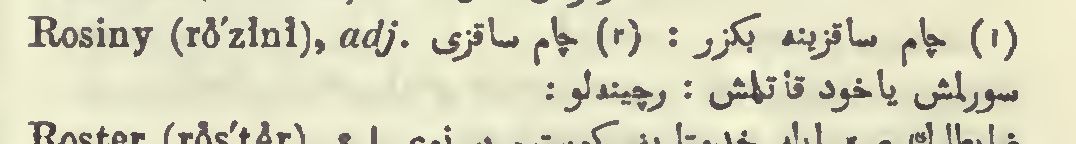 Rosiny (rŏ′zĭnĭ), adj. (١) چام ساقزینه بکزر : (٢) چام ساقزی
سورلمش یاخود قاتلمش : رچینه‌لو :
Roster (rŏs′tĕr),